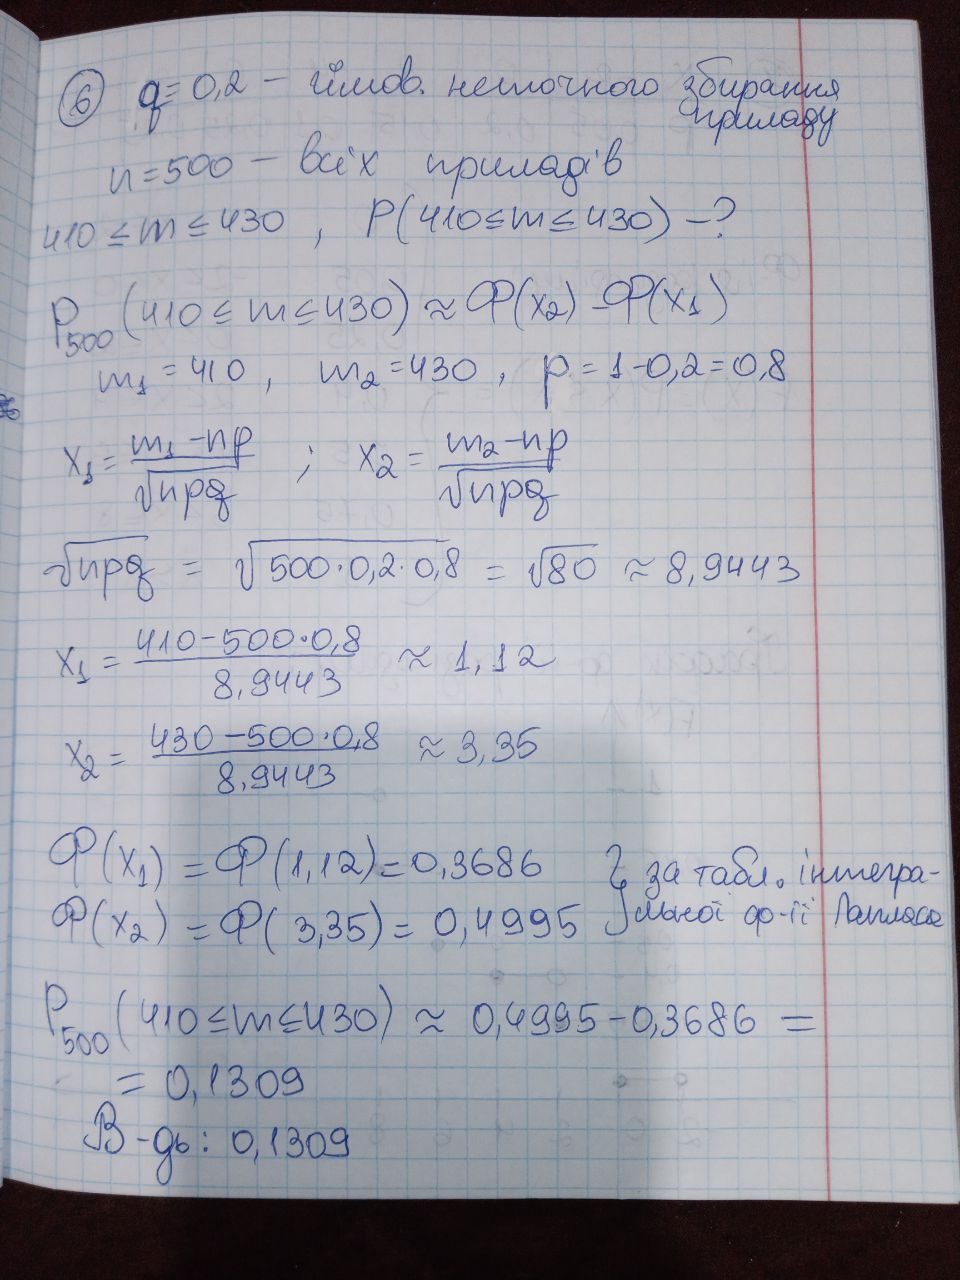 ⑥ q = 0,2 – ймов. неточного збирання приладу
n = 500 – всіх приладів
410 ≤ m ≤ 430 , P(410 ≤ m ≤ 430) – ?
P₅₀₀(410 ≤ m ≤ 430) ≈ Ф(x₂) – Ф(x₁)
m₁ = 410 , m₂ = 430 , p = 1 – 0,2 = 0,8
x₁ = (m₁ – np)/√npq ; x₂ = (m₂ – np)/√npq
√npq = √500·0,2·0,8 = √80 ≈ 8,9443
x₁ = (410 – 500·0,8)/8,9443 ≈ 1,12
x₂ = (430 – 500·0,8)/8,9443 ≈ 3,35
Ф(x₁) = Ф(1,12) = 0,3686 } за табл. інтегра-
Ф(x₂) = Ф(3,35) = 0,4995 } льної ф-ії Лапласа
P₅₀₀(410 ≤ m ≤ 430) ≈ 0,4995 – 0,3686 =
= 0,1309
В-дь: 0,1309